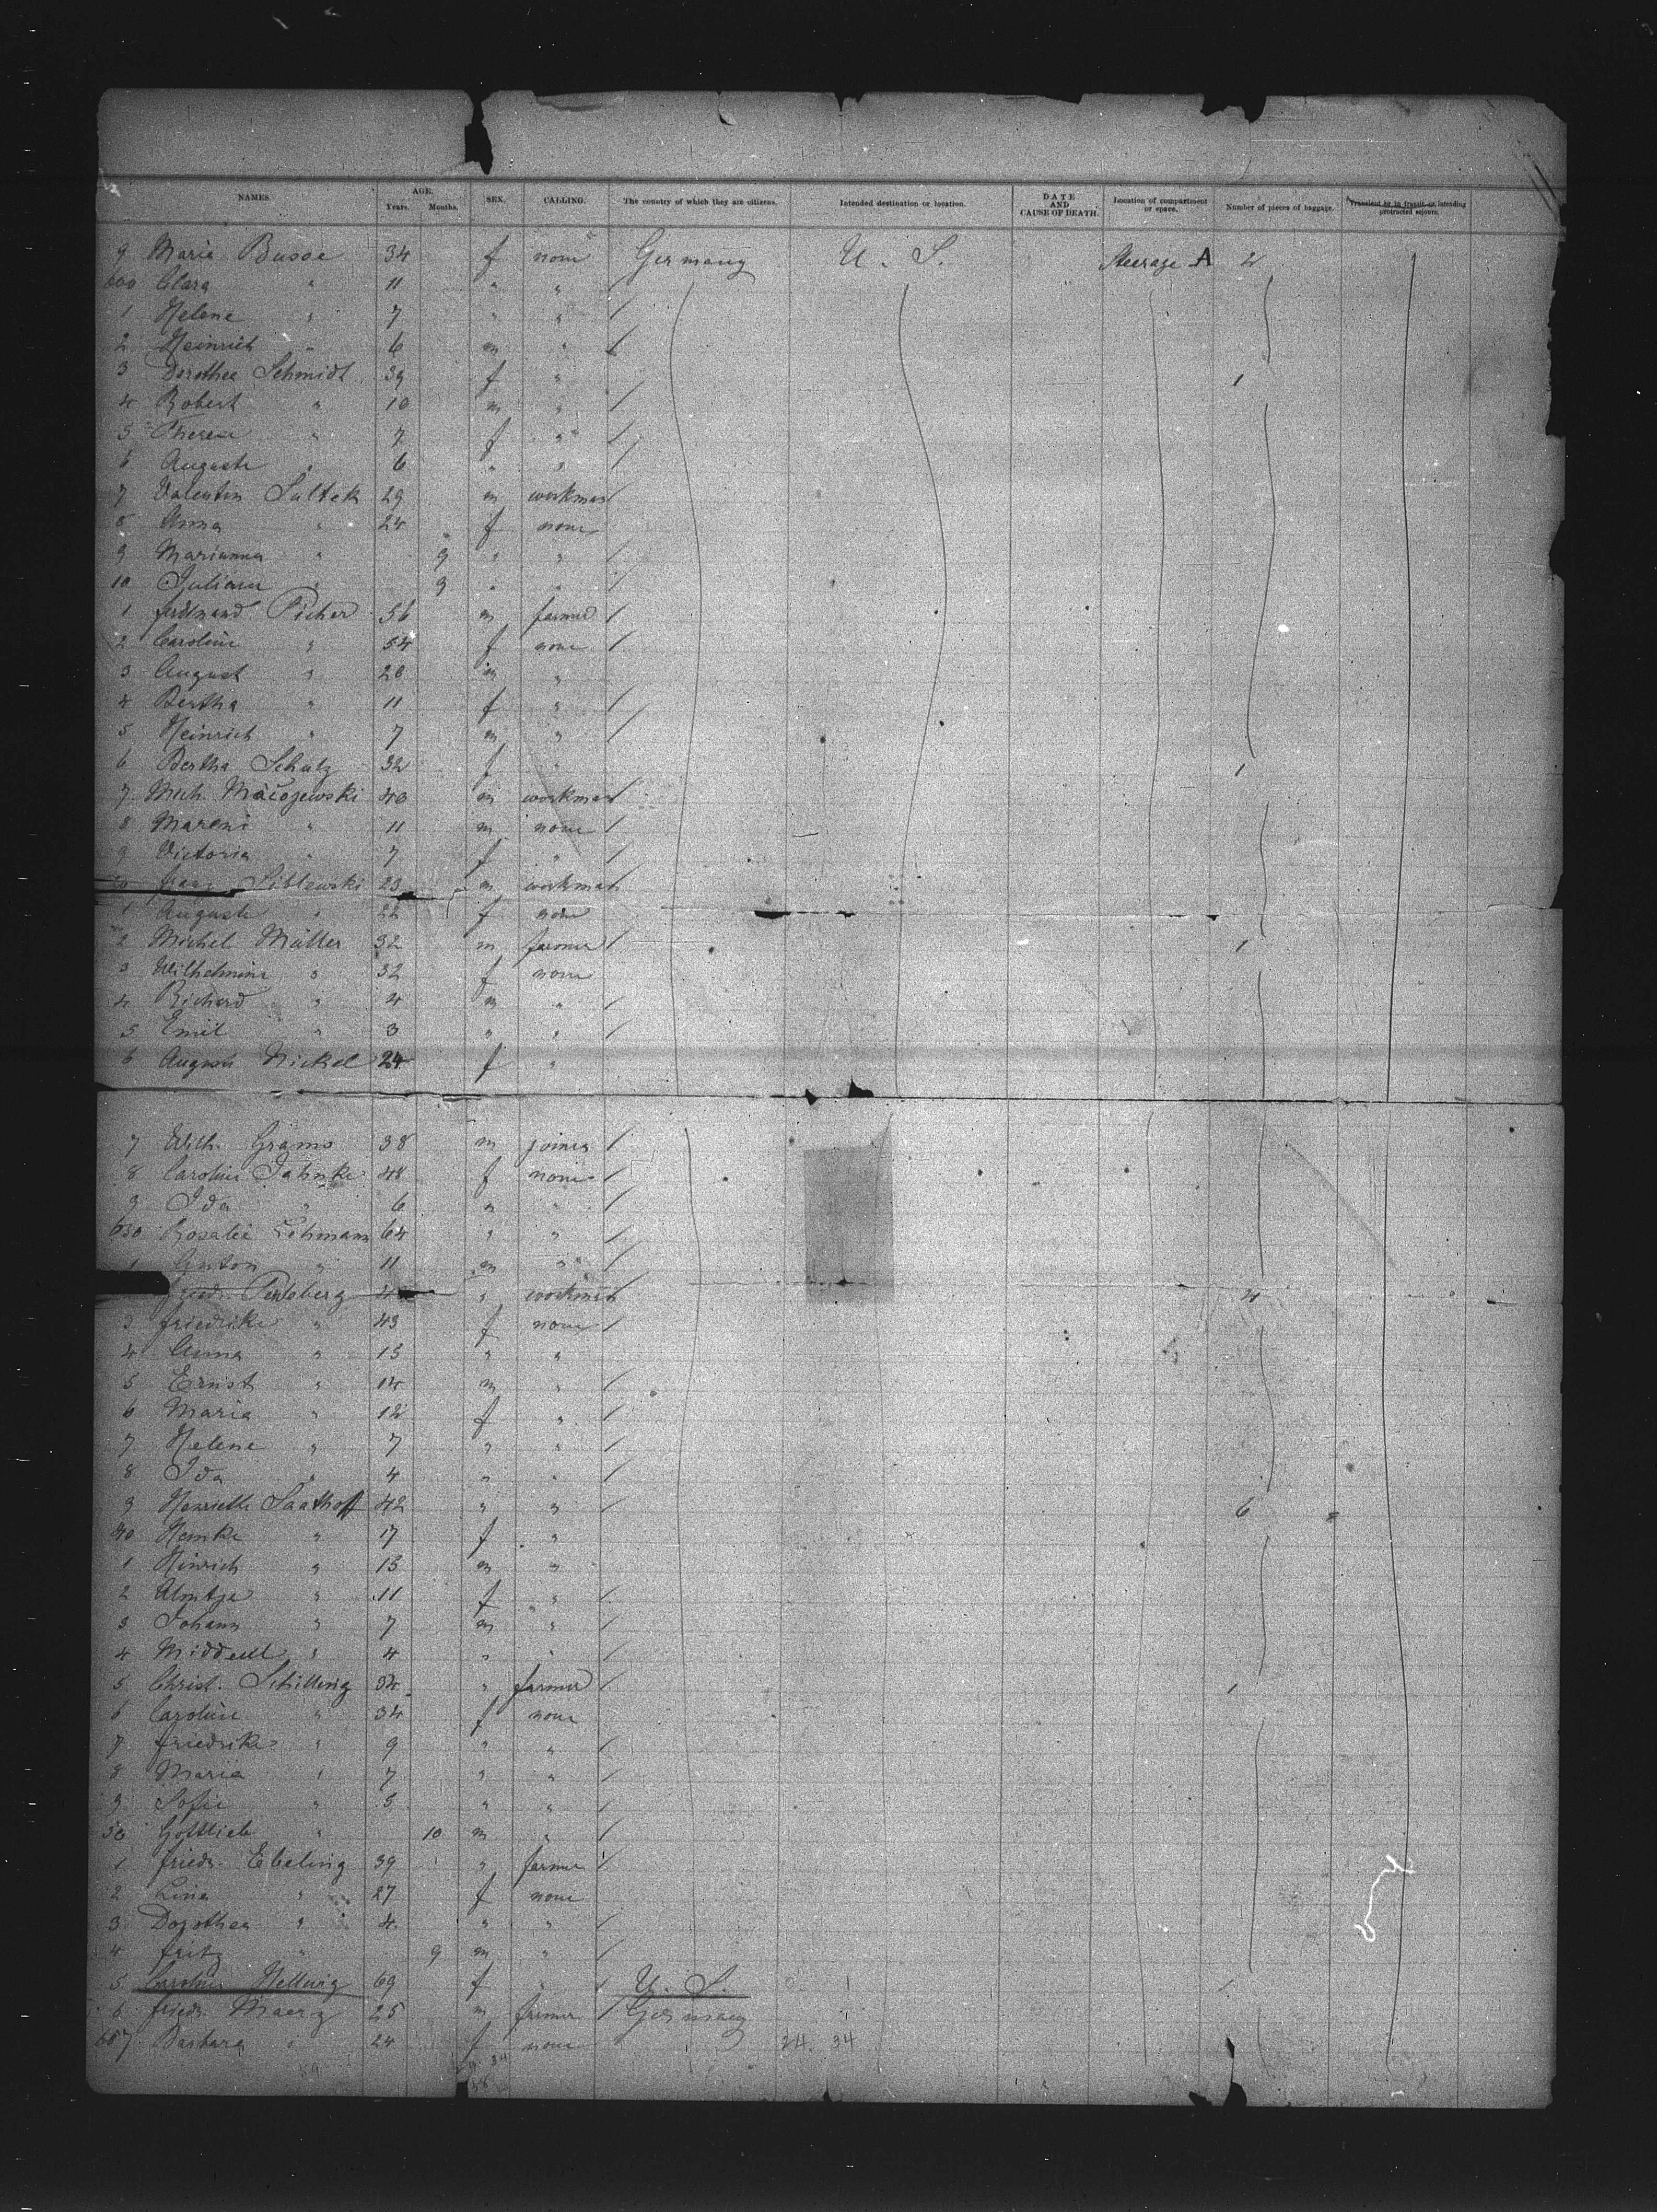 NAMES AGE. Years. Months. SEX. CALLING. The country of which they are citizens. Intended destination or location. DATE AND CAUSE OF DEATH. Location of compartment or space. Number of pieces of baggage. Transient or in transit, or intending protracted sojourn.
9 Maria Busse 34 f none Germany U. S. Steerage A 2
600 Clara " 11 " "
1 Helene " 7 " "
2 Heinrich " 6 m "
3 Dorothea Schmidt 39 f " 1
4 Robert " 10 m "
5 Therese " 7 f "
6 Auguste " 6 " "
7 Valentin Sultek 29 m workman
8 Anna " 24 f none
9 Marianna " 9 " "
10 Juliana " 9 " "
1 Ferdinand Picher 56 m farmer
2 Caroline " 54 f none
3 August " 20 m "
4 Bertha " 11 f "
5 Heinrich " 7 m "
6 Bertha Schulz 32 f " 1
7 Mich. Macojewski 40 m workman
8 " 11 m none
9 Victoria " 7 f "
23 m workman
1 Auguste " 22 f none
2 Michel Müller 32 m farmer 1
3 Wilhelmine " 32 f none
4 Richard " 4 m "
5 Emil " 3 " "
6 August Nickel 24 f "
7 Wilh. Grams 38 m joiner
8 Caroline Jahnke 48 f none
9 Ida " 6 " "
630 Rosalie Lehmann 64 " "
1 Anton " 11 m "
Friedr. " workman 4
3 Friedrike " 43 f none
4 Anna " 15 " "
5 Ernst " 14 m "
6 Maria " 12 f "
7 Helene " 7 " "
8 Ida " 4 " "
9 Henriette Saathoff 42 " " 6
40 Hemke " 17 f "
1 Hinrich " 15 m "
2 Almtje " 11 f "
3 Johann " 7 m "
4 " 4 " "
5 Christ. Schilling 34 " farmer 1
6 Caroline " 34 f none
7 Friedrike " 9 " "
8 Maria " 7 " "
9 Sofie " 5 " "
50 Gottlieb " 10 m "
1 Friedr. Ebeling 39 " farmer
2 Lina " 27 f none
3 Dorothea " 4 " "
4 Fritz " 9 m "
5 Caroline Hellwig 69 f " U. S.
6 Friedr. Maerz 25 m farmer Germany
657 Barbara " 24 f none 24. 34